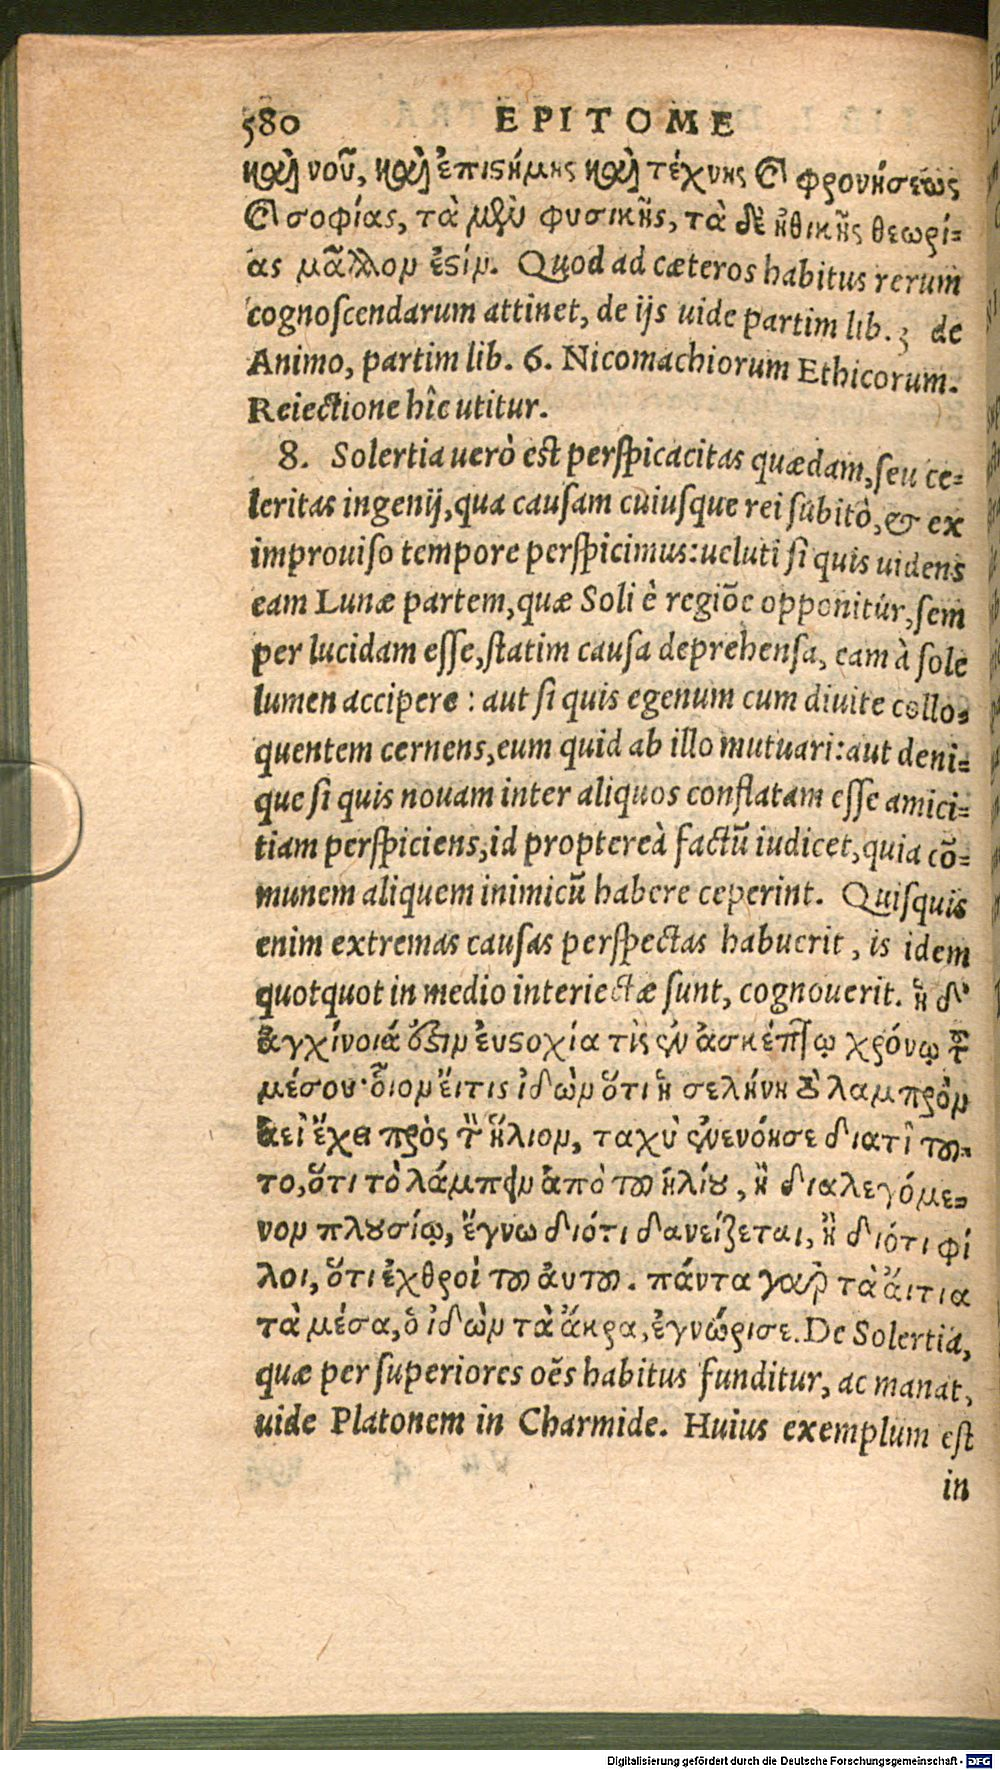 580 EPITOME
καὶ νοῦ, καὶ ἐπιστήμης καὶ τέχνης καὶ φρονήσεως
καὶ σοφίας, τὰ μὲν φυσικῆς, τὰ δὲ ἠθικῆς θεωρί-
ας μᾶλλον ἐστίν. Quod ad cæteros habitus rerum
cognoscendarum attinet, de ijs uide partim lib. 3 de
Animo, partim lib. 6. Nicomachiorum Ethicorum.
Reiectione hîc utitur.
8. Solertia uerò est perspicacitas quædam, seu ce-
leritas ingenij, qua causam cuiusque rei subitò, & ex
improuiso tempore perspicimus: ueluti si quis uidens
eam Lunæ partem, quæ Soli è regiõe opponitur, sem
per lucidam esse, statim causa deprehensa, eam à sole
lumen accipere : aut si quis egenum cum diuite collo-
quentem cernens, eum quid ab illo mutuari: aut deni-
que si quis nouam inter aliquos conflatam esse amici-
tiam perspiciens, id proptereà factũ iudicet, quia cõ-
munem aliquem inimicũ habere ceperint. Quisquis
enim extremas causas perspectas habuerit, is idem
quotquot in medio interiectæ sunt, cognouerit. ἡ δ'
ἀγχίνοιά ἐστιν εὐστοχία τὶς ἐν ἀσκέπτῳ χρόνῳ τοῦ
μέσου· οἷον εἴτις ἰδὼν ὅτι ἡ σελήνη τὸ λαμπρὸν
ἀεὶ ἔχει πρὸς τὸν ἥλιον, ταχὺ ἐνενόησε διατὶ τοῦ-
το, ὅτι τὸ λάμπειν ἀπὸ τοῦ ἡλίου, ἢ διαλεγόμε-
νον πλουσίῳ, ἔγνω διότι δανείζεται, ἢ διότι φί
λοι, ὅτι ἐχθροὶ τοῦ ἀυτοῦ. πάντα γαρ τὰ ἄιτια
τὰ μέσα, ὁ ἰδὼν τὰ ἄκρα, ἐγνώρισε. De Solertia,
quæ per superiores oẽs habitus funditur, ac manat,
uide Platonem in Charmide. Huius exemplum est
in
Digitalisierung gefördert durch die Deutsche Forschungsgemeinschaft - DFG